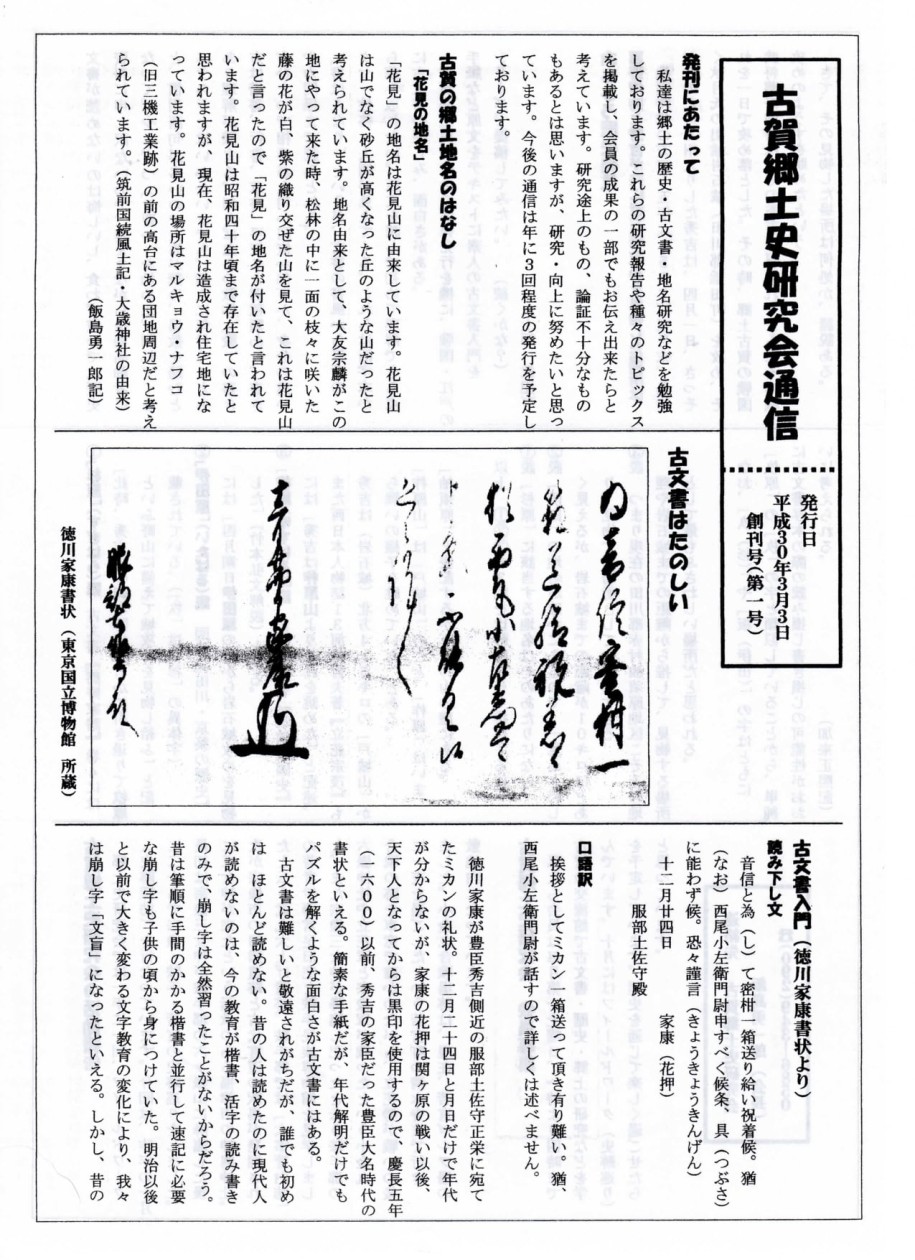 古賀郷土史研究会通信
発行日
平成30年3月3日
創刊号(第一号)
発刊にあたって
私達は郷土の歴史・古文書・地名研究などを勉強
しております。これらの研究報告や種々のトピックス
を掲載し、会員の成果の一部でもお伝え出来たらと
考えています。研究途上のもの、論証不十分なもの
もあるとは思いますが、研究・向上に努めたいと思っ
ています。今後の通信は年に3回程度の発行を予定し
ております。
古賀の郷土地名のはなし
「花見の地名」
「花見」の地名は花見山に由来しています。花見山
は山でなく砂丘が高くなった丘のような山だったと
考えられています。地名由来として、大友宗麟がこの
地にやって来た時、松林の中に一面の枝々に咲いた
藤の花が白、紫の織り交ぜた山を見て、これは花見山
だと言ったので「花見」の地名が付いたと言われて
います。花見山は昭和四十年頃まで存在していたと
思われますが、現在、花見山は造成され住宅地にな
っています。花見山の場所はマルキョウ・ナフコ
(旧三機工業跡)の前の高台にある団地周辺だと考え
られています。(筑前国続風土記・大歳神社の由来)
(飯島勇一郎記)
古文書はたのしい
徳川家康書状(東京国立博物館 所蔵)
古文書入門(徳川家康書状より)
読み下し文
音信と為(し)て密柑一箱送り給い祝着候。猶
(なお)西尾小左衛門尉申すべく候条、具(つぶさ)
に能わず候。恐々謹言(きょうきょうきんげん)
十二月廿四日 家康(花押)
服部土佐守殿
口語訳
挨拶としてミカン一箱送って頂き有り難い。猶、
西尾小左衛門尉が話すので詳しくは述べません。
徳川家康が豊臣秀吉側近の服部土佐守正栄に宛て
たミカンの礼状。十二月二十四日と月日だけで年代
が分からないが、家康の花押は関ヶ原の戦い以後、
天下人となってからは黒印を使用するので、慶長五年
(一六〇〇)以前、秀吉の家臣だった豊臣大名時代の
書状といえる。簡素な手紙だが、年代解明だけでも
パズルを解くような面白さが古文書にはある。
古文書は難しいと敬遠されがちだが、誰でも初め
は ほとんど読めない。昔の人は読めたのに現代人
が読めないのは、今の教育が楷書 活字の読み書き
のみで、崩し字は全然習ったことがないからだろう。
昔は筆順に手間のかかる楷書と並行して速記に必要
な崩し字も子供の頃から身につけていた。明治以後
と以前で大きく変わる文字教育の変化により、我々
は崩し字「文盲」になったといえる。しかし、昔の